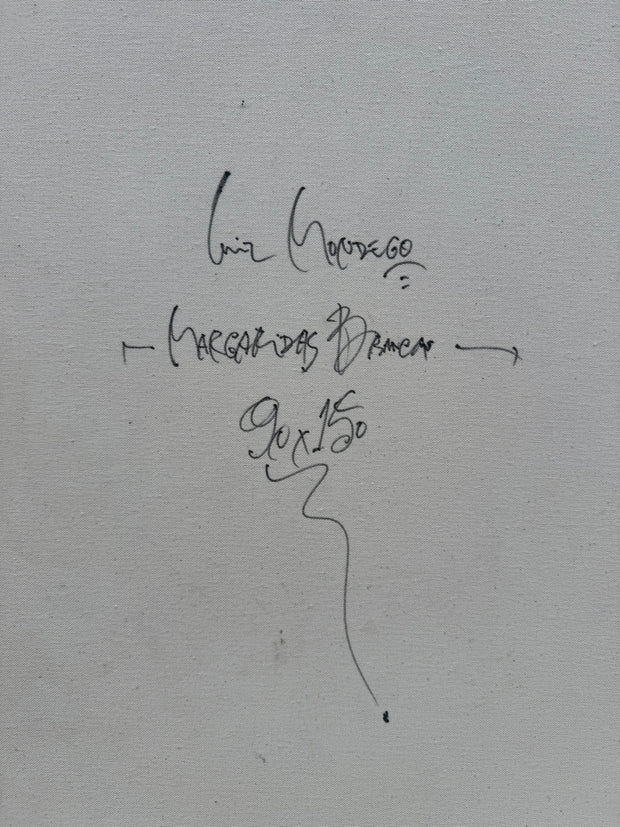 Luiz Mondego
MARGARIDAS BRANCAS
90x150